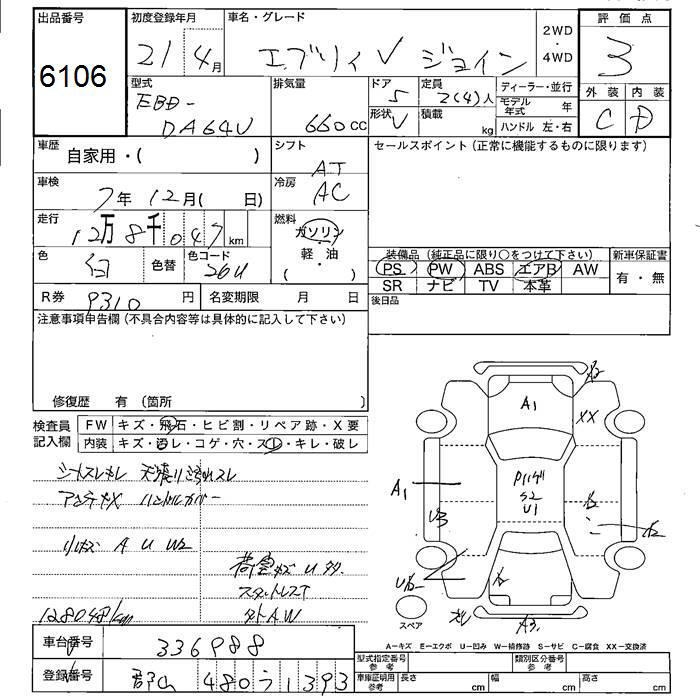 出品番号 初度登録年月 車名・グレード 2WD・4WD 評価点
6106 21 4月 エブリィ V ジョイン 3
型式 排気量 ドア 定員 ディーラー・並行 外装 内装
EBD- 5 2(4)人 モデル年式 年 C D
DA64V 660cc 形状 V 積載 kg ハンドル 左・右
車歴 自家用・( ) シフト AT セールスポイント(正常に機能するものに限ります)
車検 7年12月( 日) 冷房 AC
走行 12万8千047km 燃料 ガソリン・軽・油( )
色 白 色替 色コード 26U
装備品(純正品に限り○をつけて下さい) 新車保証書
PS PW ABS エアB AW 有・無
SR ナビ TV 本革
R券 9310円 名変期限 月 日 後日品
注意事項申告欄(不具合内容等は具体的に記入して下さい)
修復歴 有(箇所 )
検査員記入欄 FW キズ・飛石・ヒビ割・リペア跡・X要
内装 キズ・汚レ・コゲ・穴・スレ・キレ・破レ
シートスレキレ 天張リ汚れスレ
アンテナX ハンドルカバー
小キズ A U W2
荷室キズ U
スタットレスT
128048km 外AW
A1
XX
A1
S2
U1
U3
A3
スペア
A=キズ E=エクボ U=凹み W=補修跡 S=サビ C=腐食 XX=交換済
車台番号 336988 型式指定番号 参考 類別区分番号 参考
登録番号 480う1393 車庫証明用 参考 長さ cm 幅 cm 高さ cm